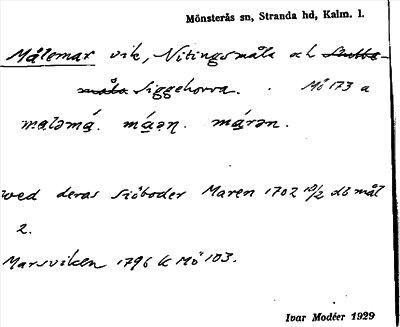 Mönsterås sn, Stranda hd, Kalm. l.
Målemar vik, Nitingsmåla och Slutte-
måla Siggehorva. Mö 173 a
maləmá. máəɳ. márən.
wed deras siöboder Maren 1702 10/2 db mål
2.
Marsviken 1796 K Mö 103.
Ivar Modéer 1929